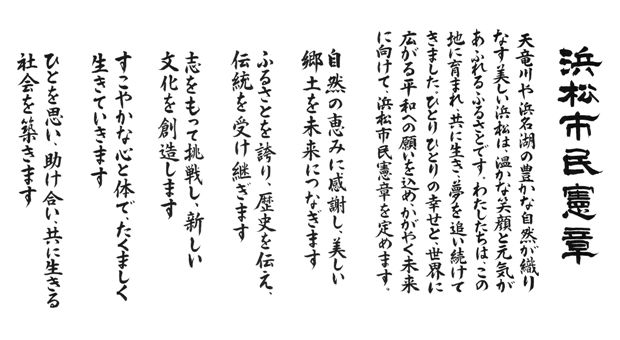 浜松市民憲章
天竜川や浜名湖の豊かな自然が織り
なす美しい浜松は、温かな笑顔と元気が
あふれる、ふるさとです。わたしたちは、この
地に育まれ、共に生き、夢を追い続けて
きました。ひとりひとりの幸せと、世界に
広がる平和への願いを込め、かがやく未来
に向けて、浜松市民憲章を定めます。
自然の恵みに感謝し、美しい
郷土を未来につなぎます
ふるさとを誇り、歴史を伝え、
伝統を受け継ぎます
志をもって挑戦し、新しい
文化を創造します
すこやかな心と体で、たくましく
生きていきます
ひとを思い、助け合い、共に生きる
社会を築きます